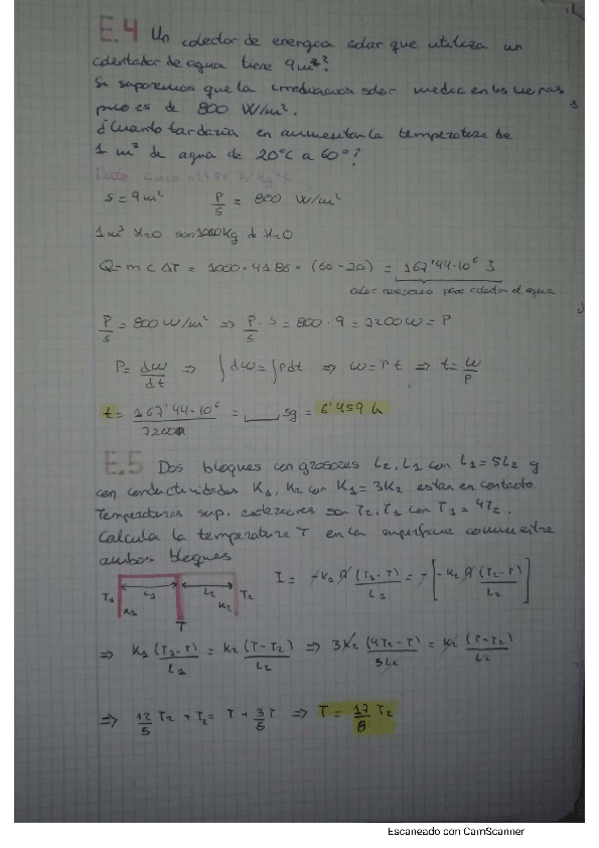 E.4 Un colector de energía solar que utiliza un
calentador de agua tiene 9 m²?
Si suponemos que la irradiación solar media en las
es de 800 W/m².
¿Cuanto tardaría en aumentar la temperatura de
1 m³ de agua de 20°C a 60°?
S = 9 m² P/S = 800 W/m²
1 m³ H₂O son 1000 Kg de H₂O
Q = m c ΔT = 1000 · 4186 · (60 - 20) = 167'44·10⁶ J
calor necesario para calentar el agua
P/S = 800 W/m² => P/S · S = 800 · 9 = 7200 W = P
P = dw/dt => ∫dw = ∫Pdt => w = P t => t = w/P
t = 167'44·10⁶/7200 = ___ sg = 6'459 h
E.5 Dos bloques con grosores L₂, L₁ con L₁ = 5L₂ y
con conductividades K₁, K₂ con K₁ = 3K₂ están en contacto
Temperaturas sup. exteriores son T₂, T₁ con T₁ = 4T₂.
Calcula la temperatura T en la superficie común entre
ambos bloques
T₁ L₁ K₁ L₂ K₂ T₂ T
I = -K₁ A (T₁-T)/L₁ = -[-K₂ A (T₂-T)/L₂]
=> K₁ (T₁-T)/L₁ = K₂ (T-T₂)/L₂ => 3K₂ (4T₂-T)/5L₂ = K₂ (T-T₂)/L₂
=> 12/5 T₂ + T₂ = T + 3/5 T => T = 17/8 T₂
Escaneado con CamScanner